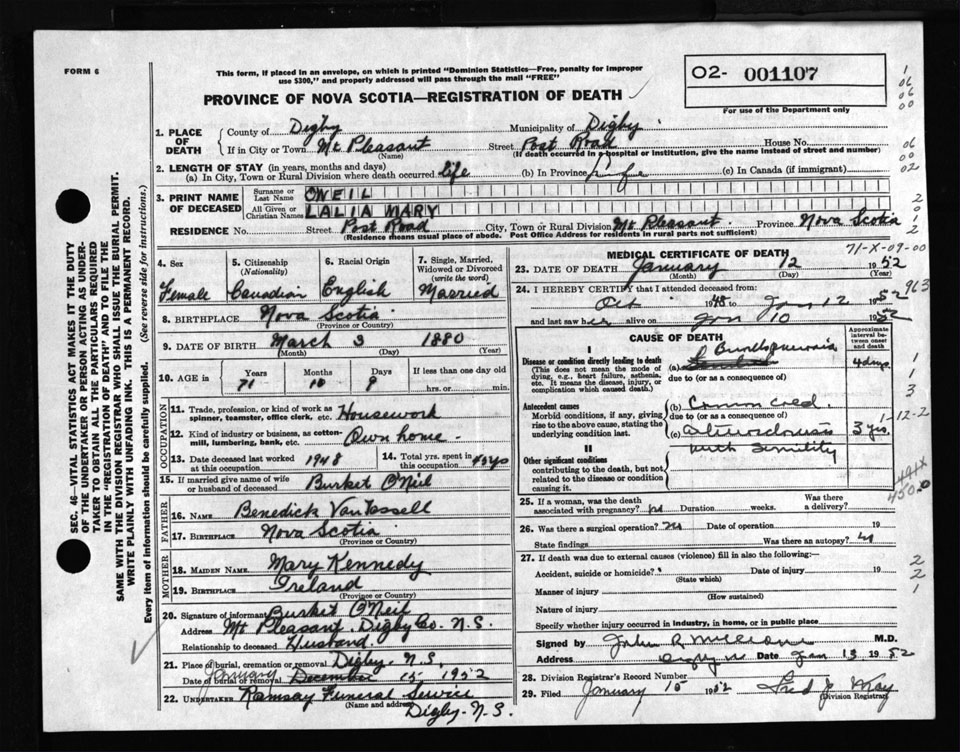 FORM 6
This form, if placed in an envelope, on which is printed "Dominion Statistics—Free, penalty for improper
use $300," and properly addressed will pass through the mail "FREE"
O2- 001107
For use of the Department only
PROVINCE OF NOVA SCOTIA—REGISTRATION OF DEATH
1. PLACE OF DEATH
County of Digby Municipality of Digby
If in City or Town Mt Pleasant Street Post Road House No.
(Name) (If death occurred in a hospital or institution, give the name instead of street and number)
2. LENGTH OF STAY (in years, months and days)
(a) In City, Town or Rural Division where death occurred life (b) In Province Life (c) In Canada (if immigrant)
3. PRINT NAME OF DECEASED
Surname or Last Name ONEIL
All Given or Christian Names LALIA MARY
RESIDENCE No. Street Post Road City, Town or Rural Division Mt Pleasant Province Nova Scotia
(Residence means usual place of abode. Post Office Address for residents in rural parts not sufficient)
71-X-09-00
SEC. 46—VITAL STATISTICS ACT MAKES IT THE DUTY
OF THE UNDERTAKER OR PERSON ACTING AS UNDER-
TAKER TO OBTAIN ALL THE PARTICULARS REQUIRED
IN THE "REGISTRATION OF DEATH" AND TO FILE THE
SAME WITH THE DIVISION REGISTRAR WHO SHALL ISSUE THE BURIAL PERMIT.
WRITE PLAINLY WITH UNFADING INK. THIS IS A PERMANENT RECORD.
Every item of information should be carefully supplied. (See reverse side for instructions.)
4. Sex Female
5. Citizenship (Nationality) Canadian
6. Racial Origin English
7. Single, Married, Widowed or Divorced (write the word) Married
8. BIRTHPLACE Nova Scotia
(Province or Country)
9. DATE OF BIRTH March 3 1880
(Month) (Day) (Year)
10. AGE in Years 71 Months 10 Days 9 If less than one day old
hrs. or min.
OCCUPATION
11. Trade, profession, or kind of work as spinner, teamster, office clerk, etc. Housework
12. Kind of industry or business, as cotton-mill, lumbering, bank, etc. Own home
13. Date deceased last worked at this occupation 1948
14. Total yrs. spent in this occupation 40 yrs
15. If married give name of wife or husband of deceased Burket O'Neil
FATHER
16. NAME Benedick VanTassell
17. BIRTHPLACE Nova Scotia
(Province or Country)
MOTHER
18. MAIDEN NAME Mary Kennedy
19. BIRTHPLACE Ireland
(Province or Country)
20. Signature of informant Burket O'Neil
Address Mt Pleasant Digby Co. N.S.
Relationship to deceased Husband
21. Place of burial, cremation or removal Digby. N.S.
Date of burial or removal January December 15, 1952
22. UNDERTAKER Ramsay Funeral Service
(Name and address) Digby. N.S.
MEDICAL CERTIFICATE OF DEATH
23. DATE OF DEATH January 12 1952
(Month) (Day) (Year)
24. I HEREBY CERTIFY that I attended deceased from:
Oct 1948 to Jan 12 1952
and last saw her alive on Jan 10 1952
963
CAUSE OF DEATH
Approximate interval between onset and death
I
Disease or condition directly leading to death
(This does not mean the mode of dying, e.g., heart failure, asthenia, etc. It means the disease, injury, or complication which caused death.)
(a) Bronchopneumonia 4 days
due to (or as a consequence of)
Antecedent causes
Morbid conditions, if any, giving rise to the above cause, stating the underlying condition last.
(b) Common cold.
due to (or as a consequence of)
(c) Arteriosclerosis 3 yrs.
with Senility
II
Other significant conditions
contributing to the death, but not related to the disease or condition causing it.
1-12-2
450.0
25. If a woman, was the death associated with pregnancy? no Duration weeks. Was there a delivery?
26. Was there a surgical operation? no Date of operation 19
State findings Was there an autopsy? no
27. If death was due to external causes (violence) fill in also the following:—
Accident, suicide or homicide? Date of injury 19
(State which)
Manner of injury
(How sustained)
Nature of injury
Specify whether injury occurred in industry, in home, or in public place
Signed by John R M.D.
Address Digby NS Date Jan 13 1952
28. Division Registrar's Record Number
29. Filed January 15 1952 Fred J. May
(Division Registrar)